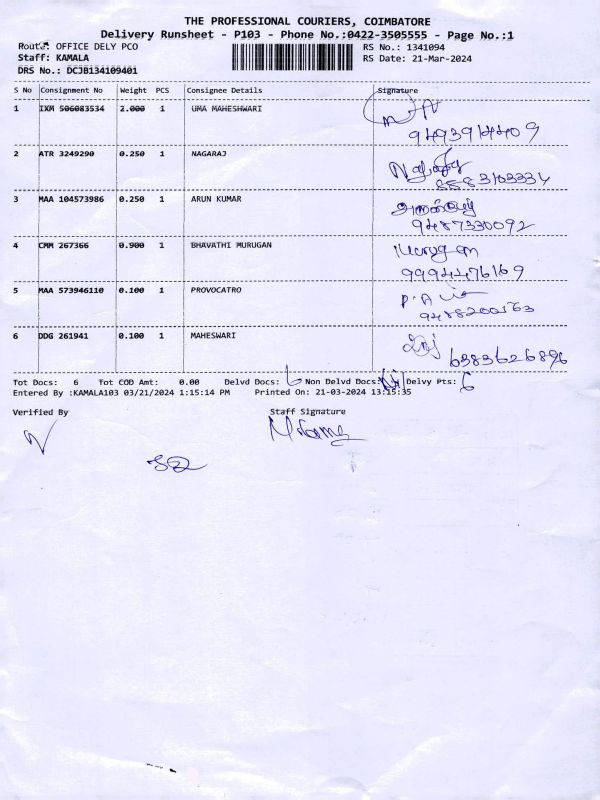 THE PROFESSIONAL COURIERS, COIMBATORE
Delivery Runsheet - P103 - Phone No.:0422-3505555 - Page No.:1
Route: OFFICE DELY PCO RS No.: 1341094
Staff: KAMALA RS Date: 21-Mar-2024
DRS No.: DCJB134109401
S No Consignment No Weight PCS Consignee Details Signature
1 IXM 506083534 2.000 1 UMA MAHESHWARI
9493914409
2 ATR 3249290 0.250 1 NAGARAJ
8583103334
3 MAA 104573986 0.250 1 ARUN KUMAR
9487330092
4 CMM 267366 0.900 1 BHAVATHI MURUGAN Murugan
9994476169
5 MAA 573946110 0.100 1 PROVOCATRO
9488200563
6 DDG 261941 0.100 1 MAHESWARI
6383626896
Tot Docs: 6 Tot COD Amt: 0.00 Delvd Docs: 6 Non Delvd Docs: Nil Delvy Pts: 6
Entered By :KAMALA103 03/21/2024 1:15:14 PM Printed On: 21-03-2024 13:15:35
Verified By Staff Signature